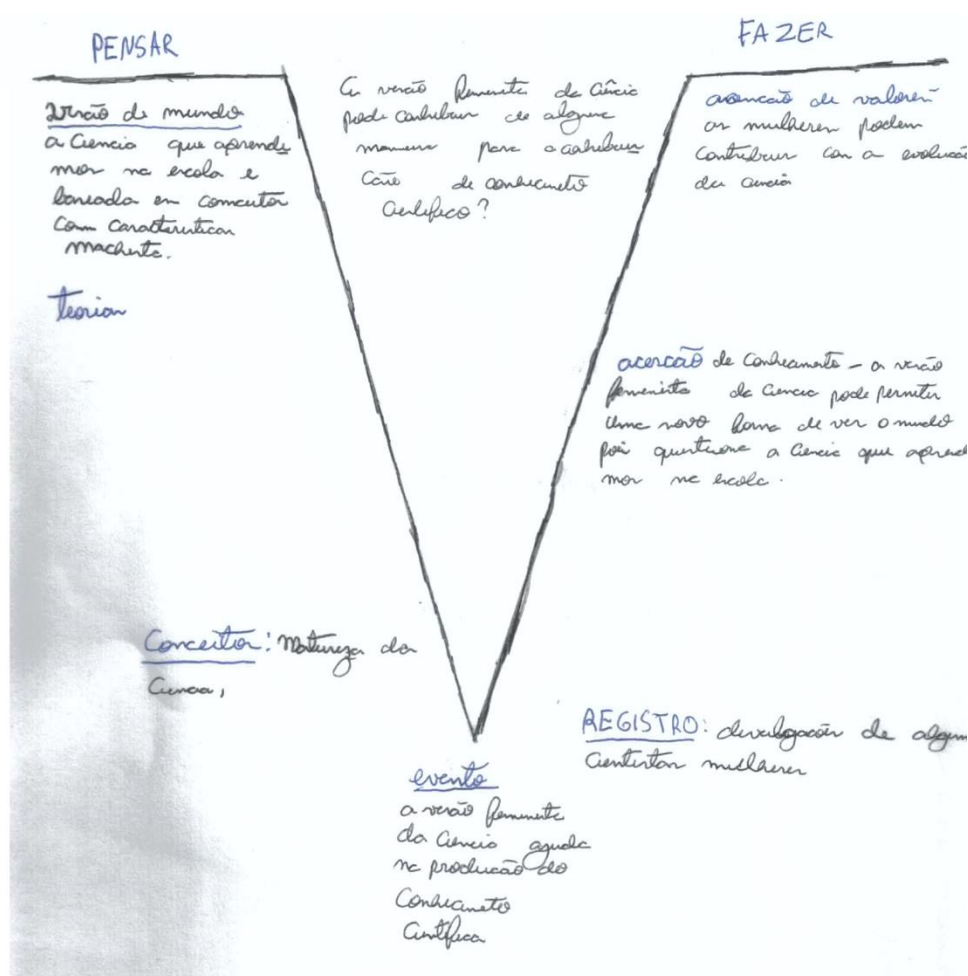 PENSAR
Visão de mundo
a Ciencia que aprende
mos na escola e
baseada em conceitos
com caracteristicas
machista.
teorias
A versão feminista da Ciência
pode contribuir de alguma
maneira para a contribui
cão de conhecimeto
cientifico?
FAZER
asercão de valores
as mulheres podem
contribuir com a evolucão
da ciencia
acercão de conhecimento – a versão
feminista da ciencia pode permitir
uma nova forma de ver o mundo
pois questiona a ciencia que aprend
mos na escola.
Conceitos: Natureza da
Ciencia,
REGISTRO: divulgacão de algum
cientistas mulheres
evento
a versão feminista
da ciencia ajuda
na producão do
conhecimeto
cientifica